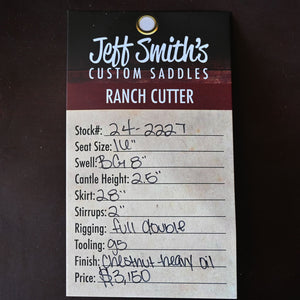 Jeff Smith's
CUSTOM SADDLES
RANCH CUTTER
Stock#: 24-2227
Seat Size: 16"
Swell: BG 8"
Cantle Height: 2.5"
Skirt: 28"
Stirrups: 2"
Rigging: full double
Tooling: gs
Finish: Chestnut heavy oil
Price: $3,150